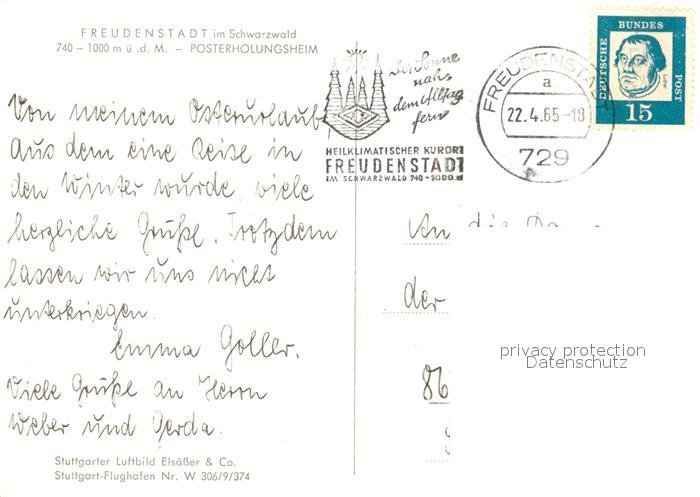 FREUDENSTADT im Schwarzwald
740 – 1000 m ü. d. M. – POSTERHOLUNGSHEIM
Von meinem Osterurlaub,
aus dem eine Reise in
den Winter wurde, viele
herzliche Grüße. Trotzdem
lassen wir uns nicht
unterkriegen.
Emma Goller.
Viele Grüße an Herrn
Weber und Gerda.
Stuttgarter Luftbild Elsäßer & Co.
Stuttgart-Flughafen Nr. W 306/9/374
Der Sonne
nah,
dem Alltag
fern
HEILKLIMATISCHER KURORT
FREUDENSTADT
IM SCHWARZWALD 740-1000 m
FREUDENSTA
a
22.4.65-18
729
DEUTSCHE BUNDES POST
Luther
15
An die
der
86
privacy protection
Datenschutz